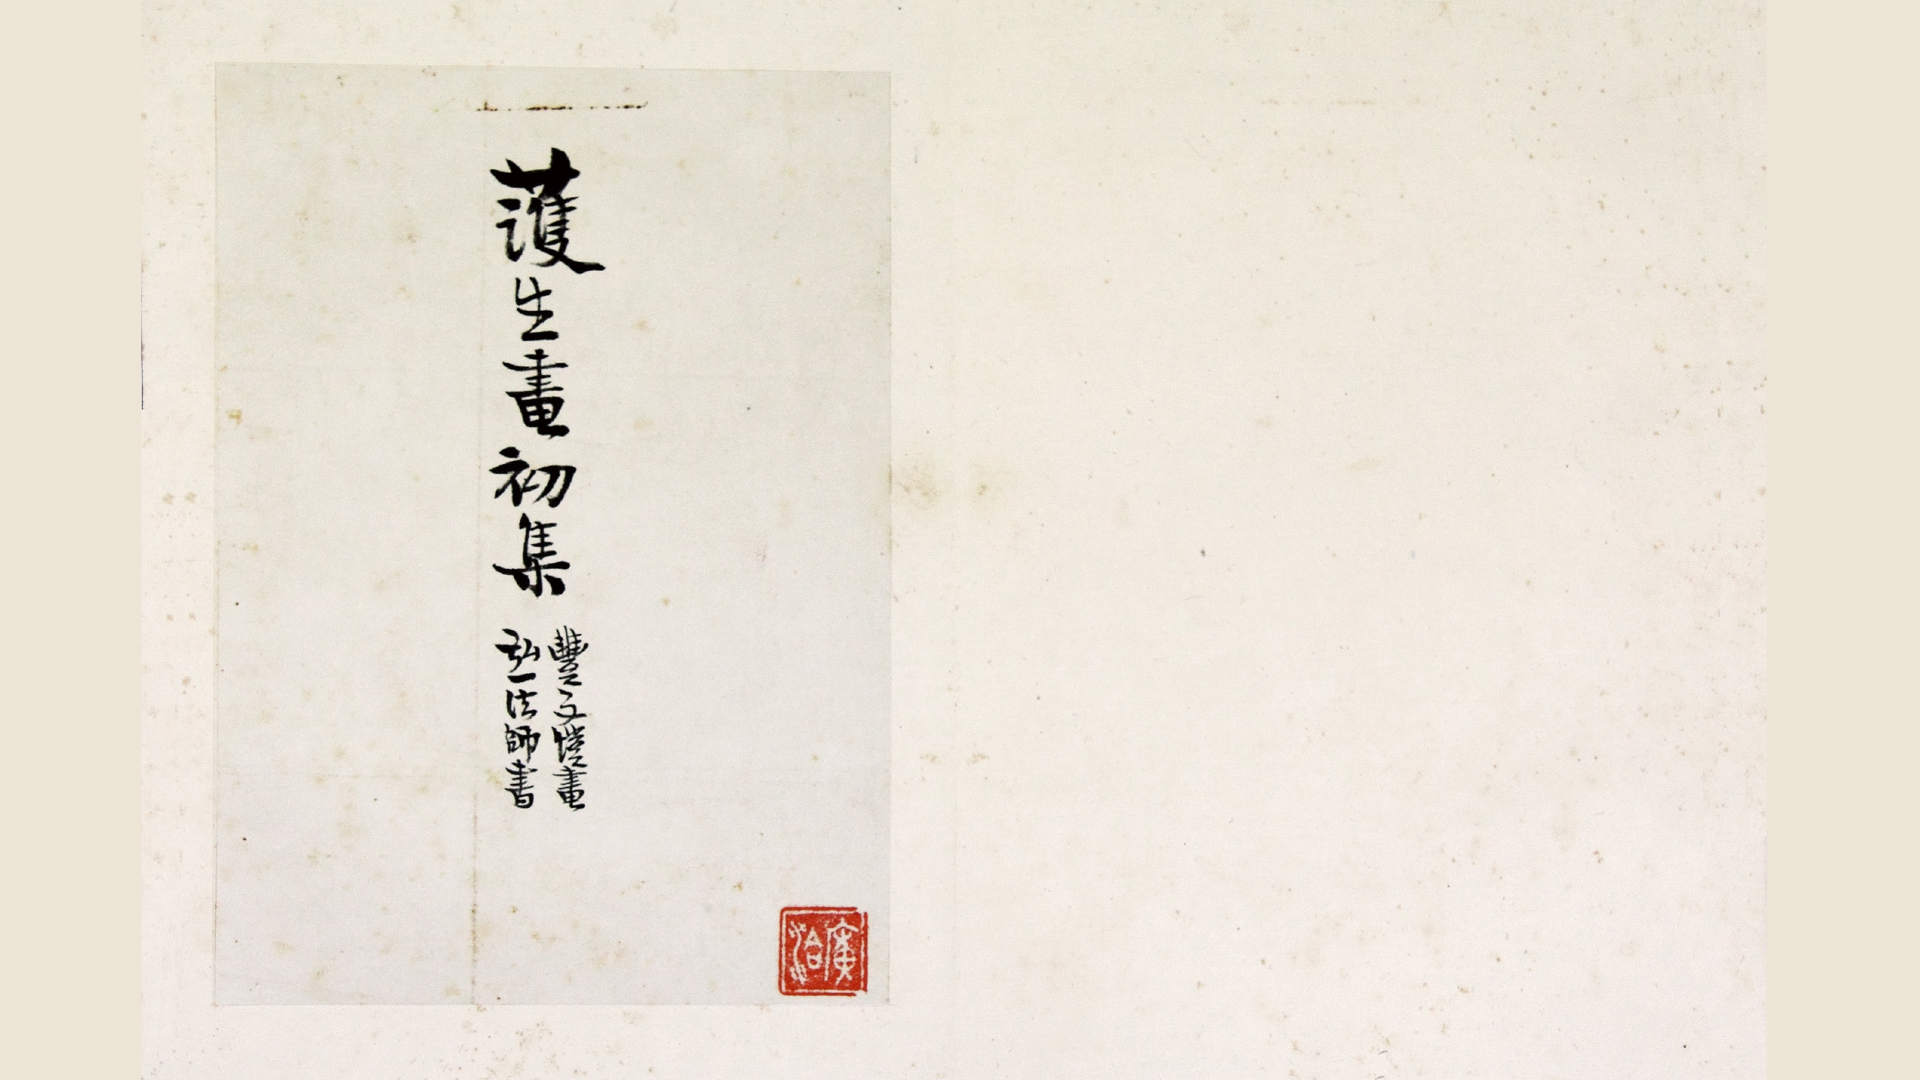 護生畫初集
豐子愷畫
弘一法師書
廣洽